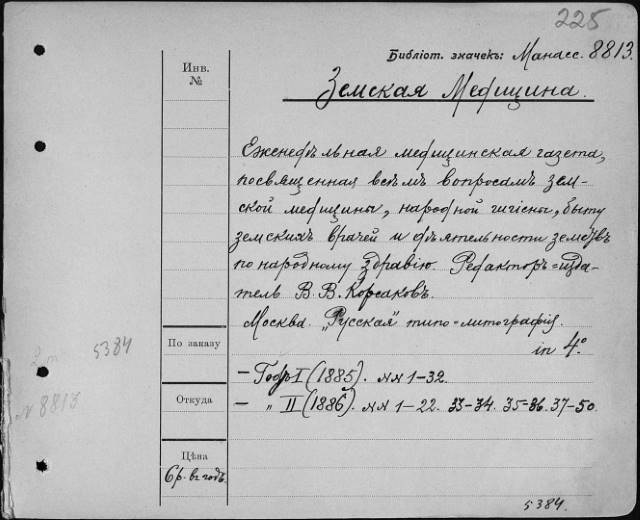 225
Библіот. значекъ: Манасс. 8813.
Инв. №
Земская Медицина.
Еженедѣльная медицинская газета,
посвященная всѣмъ вопросамъ зем-
ской медицины, народной гигіены, быту
земскихъ врачей и дѣятельности земствъ
по народному здравію. Редакторъ=изда-
тель В. В. Корсаковъ.
Москва. „Русская" типо=литографія.
in 4.°
По заказу
5384
— Годъ I (1885). №№ 1–32.
Откуда
— „ II (1886). №№ 1–22. 33–34. 35–36. 37–50.
№ 8813
Цѣна
6 р. въ годъ.
5384.